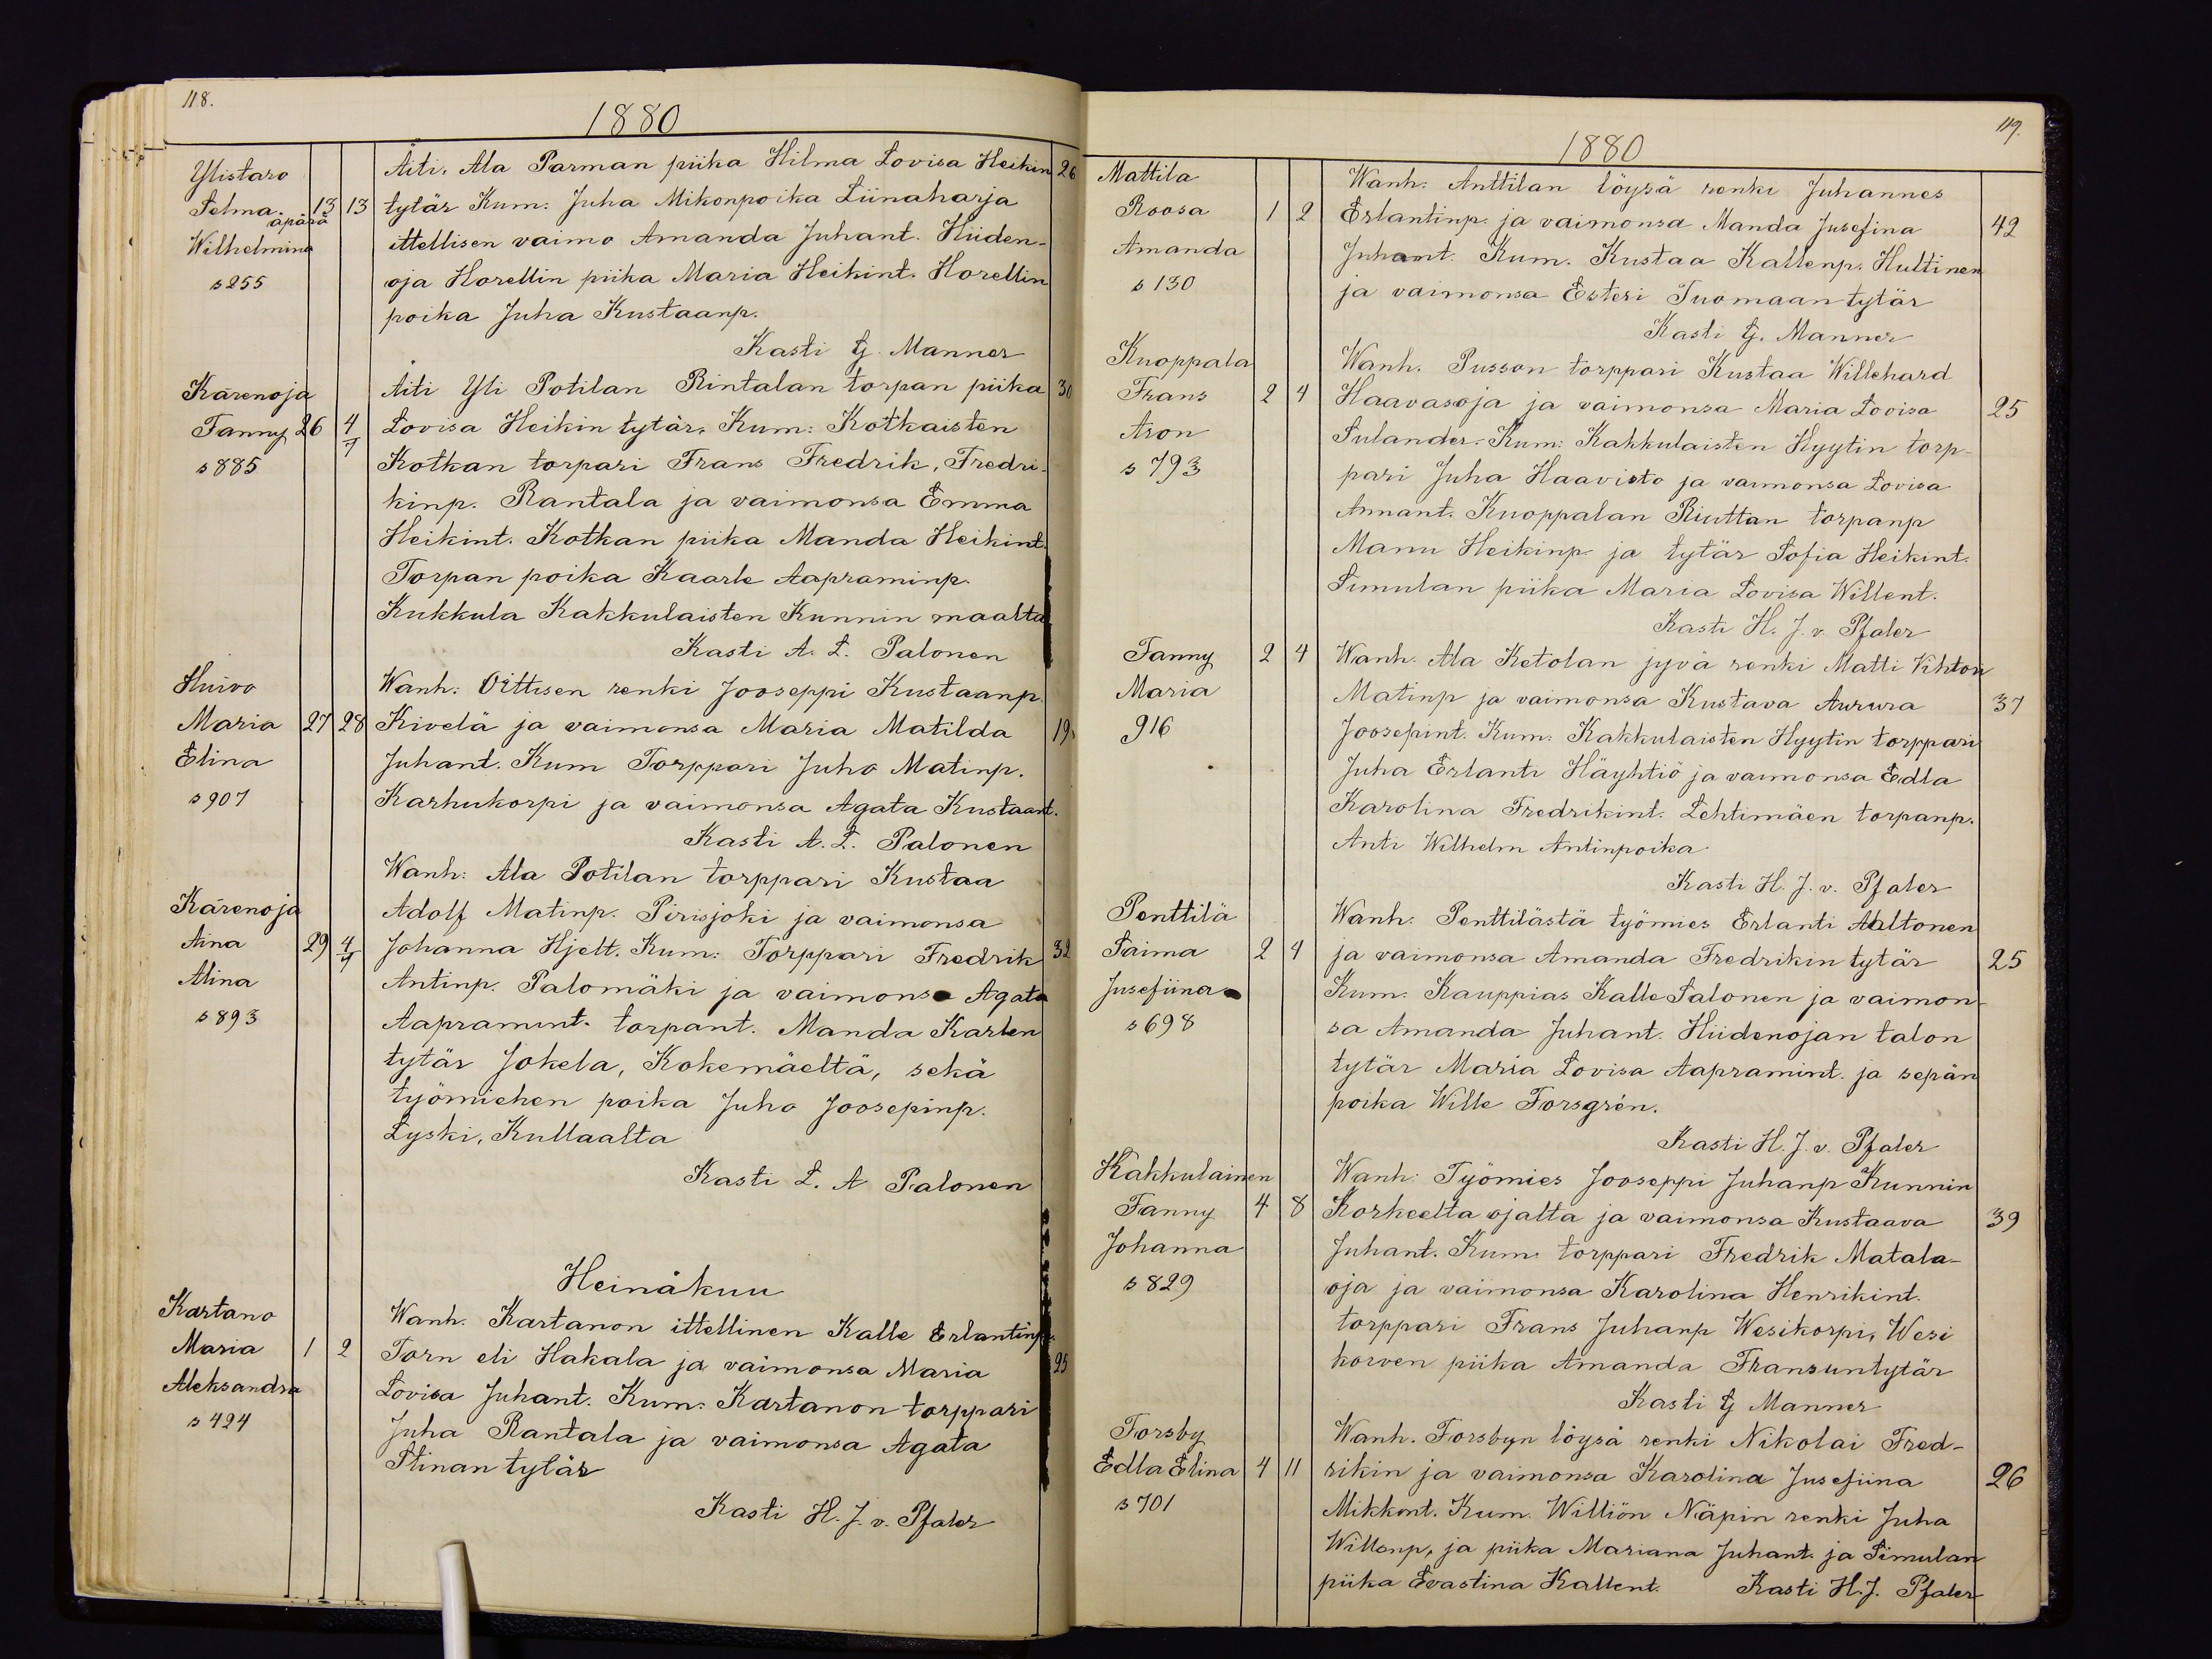 118.
1880
Ylistaro
Selma. 13 13
äpärä
Wilhelmina
s 255
Äiti. Ala Parman piika Hilma Lovisa Heikin 26
tytär Kum: Juha Mikonpoika Liinaharja
ittellisen vaimo Amanda Juhant. Hiiden-
oja Horellin piika Maria Heikint. Horellin
poika Juha Kustaanp.
Kasti G. Manner
Kärenoja
Fanny 26 4/7
s 885
Äiti Yli Potilan Rintalan torpan piika 30
Lovisa Heikin tytär. Kum: Kotkaisten
Kotkan torpari Frans Fredrik, Fredri-
kinp. Rantala ja vaimonsa Emma
Heikint. Kotkan piika Manda Heikint.
Torpan poika Kaarle Aapraminp.
Kukkula Kakkulaisten Kunnin maalta
Kasti A. L. Palonen
Huivo
Maria 27 28
Elina
s 907
Wanh: Oittisen renki Jooseppi Kustaanp.
Kivelä ja vaimonsa Maria Matilda 19
Juhant. Kum Torppari Juho Matinp.
Karhukorpi ja vaimonsa Agata Kustaant.
Kasti A. L. Palonen
Kärenoja
Aina 29 4/7
Alina
s 893
Wanh: Ala Potilan torppari Kustaa
Adolf Matinp. Pirisjoki ja vaimonsa
Johanna Hjelt. Kum: Torppari Fredrik 32
Antinp. Palomäki ja vaimonsa Agata
Aapramint. torpant. Manda Karlen
tytär Jokela, Kokemäeltä, sekä
työmiehen poika Juho Joosepinp.
Lyski, Kullaalta
Kasti L. A Palonen
Heinäkuu
Kartano
Maria 1 2
Aleksandra
s 424
Wanh. Kartanon ittellinen Kalle Erlantinp.
Torn eli Hakala ja vaimonsa Maria 25
Lovisa Juhant. Kum. Kartanon torppari
Juha Rantala ja vaimonsa Agata
Stinan tytär
Kasti H. J. v. Pfaler
119.
1880
Mattila
Roosa 1 2
Amanda
s 130
Wanh. Anttilan löysä renki Juhannes
Erlantinp. ja vaimonsa Manda Jusefina 42
Juhant. Kum. Kustaa Kallenp. Hultinen
ja vaimonsa Esteri Tuomaan tytär
Kasti G. Manner
Knoppala
Frans 2 4
Aron
s 793
Wanh. Pusson torppari Kustaa Willehard
Haavasoja ja vaimonsa Maria Lovisa 25
Sulander. Kum: Kakkulaisten Hyytin torp-
pari Juha Haavisto ja vaimonsa Lovisa
Annant. Knoppalan Riuttan torpanp
Manu Heikinp. ja tytär Sofia Heikint.
Simulan piika Maria Lovisa Willent.
Kasti H. J. v. Pfaler
Fanny 2 4
Maria
916
Wanh. Ala Ketolan jyvä renki Matti Vihtori
Matinp ja vaimonsa Kustava Aurura 37
Joosepint. Kum. Kakkulaisten Hyytin torppari
Juha Erlanti Häyhtiö ja vaimonsa Edla
Karolina Fredrikint. Lehtimäen torpanp.
Anti Wilhelm Antinpoika
Kasti H. J. v. Pfaler
Penttilä
Saima 2 4
Jusefiina
s 698
Wanh: Penttilästä työmies Erlanti Aaltonen
ja vaimonsa Amanda Fredrikin tytär 25
Kum. Kauppias Kalle Salonen ja vaimon-
sa Amanda Juhant. Hiidenojan talon
tytär Maria Lovisa Aapramint. ja sepän
poika Wille Forsgrén.
Kasti H. J. v. Pfaler
Kakkulainen
Fanny 4 8
Johanna
s 829
Wanh: Työmies Jooseppi Juhanp Kunnin
Korkeelta ojalta ja vaimonsa Kustaava 39
Juhant. Kum. torppari Fredrik Matala-
oja ja vaimonsa Karolina Henrikint.
torppari Frans Juhanp Wesikorpi, Wesi
korven piika Amanda Fransuntytär
Kasti G Manner
Forsby
Edla Elina 4 11
s 701
Wanh. Forsbyn löysä renki Nikolai Fred-
rikin ja vaimonsa Karolina Jusefiina 26
Mikkont. Kum. Williön Näpin renki Juha
Willenp, ja piika Mariana Juhant. ja Simulan
piika Evastina Kallent. Kasti H. J. Pfaler